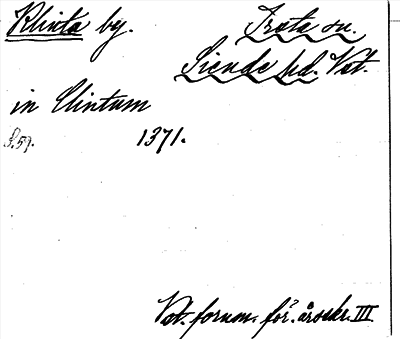 Klinta by. Irsta sn.
Siende hd. Vst.
in Clintum
S. 59. 1371.
Vst. fornm. för. årsskr. III